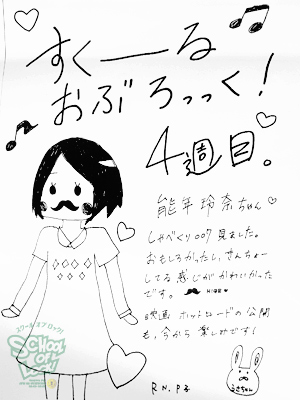 すくーる
おぶろっっく!
4週目。
能年玲奈ちゃん♡
しゃべくり007見ました。
おもしろかったし、きんちょー
してる感じがかわいかった
です。 HIGE ♥
映画 ホットロードの公開
も、今から楽しみです!
R.N. P子
うさちゃん
スクール オブ ロック!
SCHOOL
OF
LOCK!